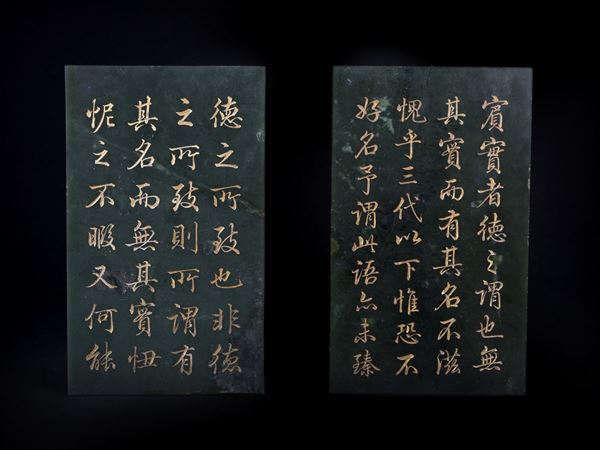 賓實者德之謂也無
其實而有其名不滋
愧乎三代以下惟恐不
好名予謂此語亦未臻
德之所致也非德
之所致則所謂有
其名而無其實忸
怩之不暇又何能